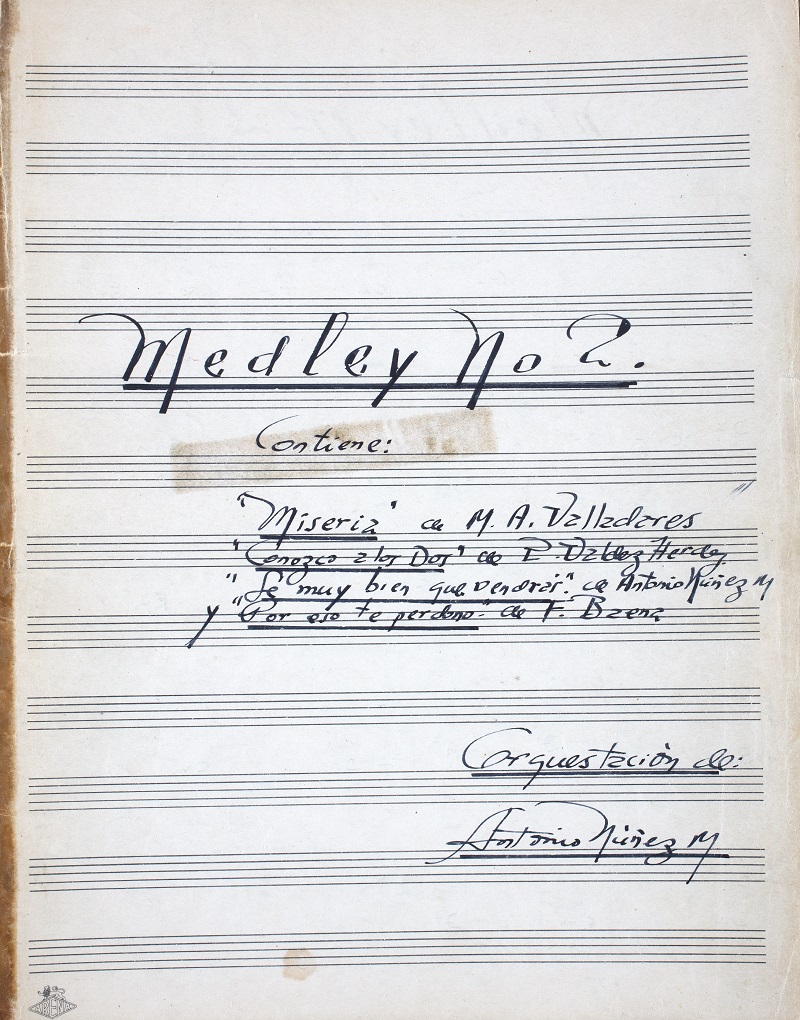 Medley No 2.
Contiene:
"Miseria" de M. A. Valladares
"Conozco a los Dos" de P. Valdez Herdez,
"Se muy bien que vendrás." de Antonio Núñez M
y "Por eso te perdono." de F. Baena
Orquestación de:
Antonio Núñez M